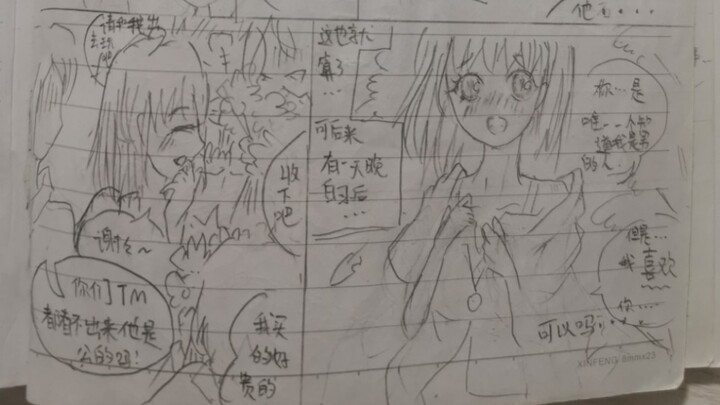 请和我出
去玩吧
收
下吧
谢谢~
你们TM
都看不出来他是
公的吗!
我买
的好
贵的
这也就
算了
...
可后来
有一天晚
自习后
...
他在...
你...是
唯一一个知
道我是男
的人
但是...
我喜欢
你...
可以吗...
XINFENG